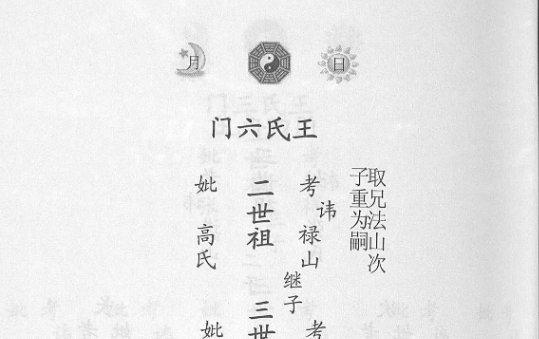 日
月
王氏六门
取兄法山次
子重为嗣
考讳禄山
继子
二世祖
妣高氏
考
三世
妣